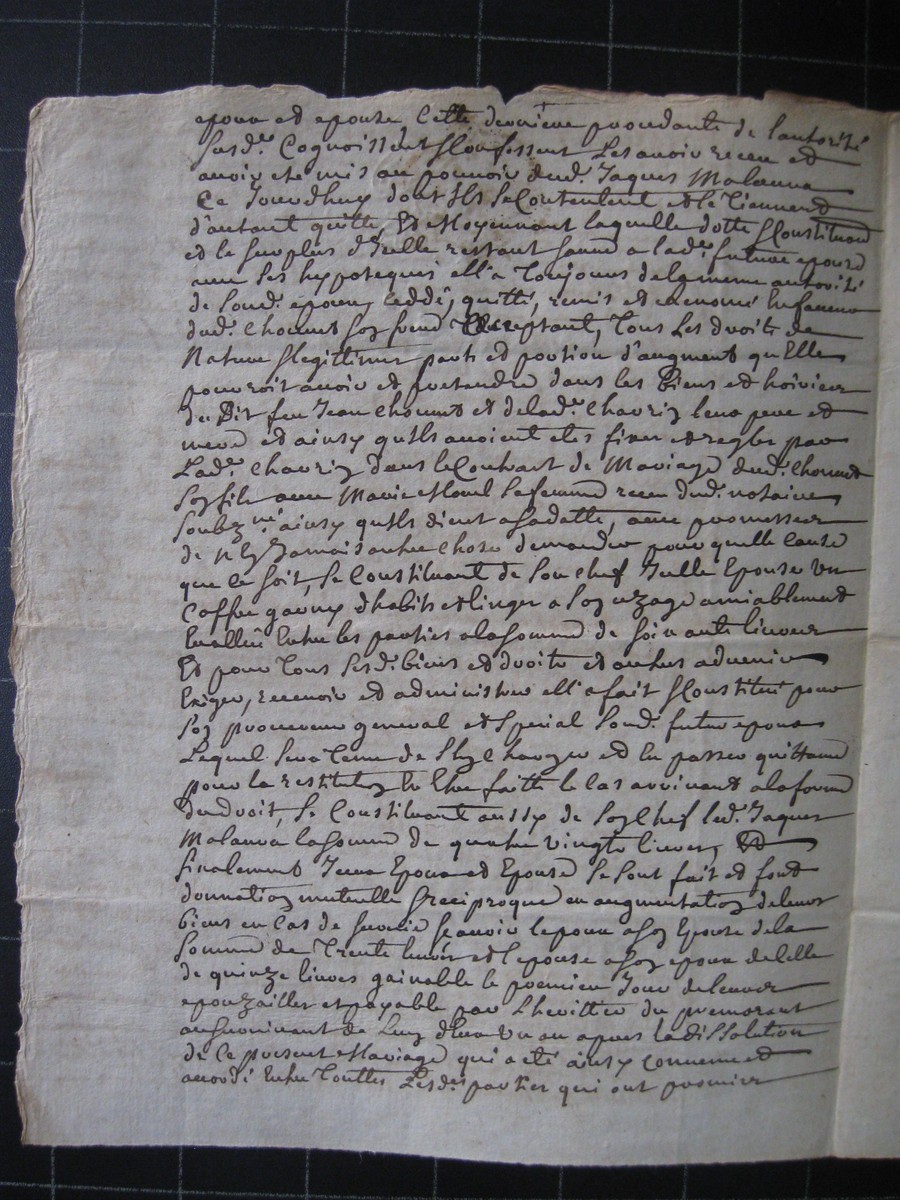 epoux et epouse Cette derniere procedante de lautorité
susd.e Cognoissent & Confessent Les avoir receu et
avoir eté mis au pouvoir dud. Jaques Malauna
Ce Jourdhuy dont Ils se Contentent et le Tiennent
d'autant quitte, Et Moyennant laquelle dotte & Constitution
et le surplus d'Icelle restant sauve a lad.e future epouze
avec ses hypoteques ell'a Toujours de la meme autorité
de Soud. epoux ceddé, quitté, remis et renoncé En faveur
dud. Choumet soy frere acceptant, Tous Les droits de
Nature & legittime part et portion d'augment qu'Elle
pourroit avoir et pretendre dans les Biens et hoiries
du Dit feu Jean Choumet et de lad.e Chavriy leur pere et
mere et ainsy qu'Ils avoient etes fixes et regles par
Lad.e Chavriy dans le Contract de Mariage dud. Choumet
soy fils avec Marie sa femme receu dud. notaire
Soubz.né ainsy qu'Ils dient a sa datte, avec promesse
de n'Ey Jamais autre chose demander pour quelle cause
que ce soit, se Constituant de Son chef Icelle Epouse un
Coffre garny d'habits et linges a soy uzage amiablement
Evallué Entre les parties a la somme de soixante livres
Et pour Tous sesd. biens et droits et autres advenir
Exiger, recevoir et administrer ell'a fait & Constitué pour
soy procureur general et special Soud. futur epoux
Lequel sera Tenu de s'Ey charger et En passer quittance
pour la restitutioy En Etre faitte le cas arrivant a la forme
du droit, Se Constituant aussy de Soy Chef led. Jaques
Malauna la somme de quatre vingts livres, Et
finalement Iceux Epoux et Epouse Se Sont fait et font
donnatioy mutuelle & reciproque en augmentatioy de leurs
biens en cas de survie Scavoir lepoux a soy Epouse de la
somme de Trente livres et l'epouse a soy epoux de celle
de quinze livres gainable le premier Jour de leurs
epouzailles et payable par L'heritier du premorant
au survivant de Luy d'Eux Un an apres la dissolution
de Ce present Mariage qui a eté ainsy Convenu et
accordé Entre Touttes Lesd.es parties qui ont promis